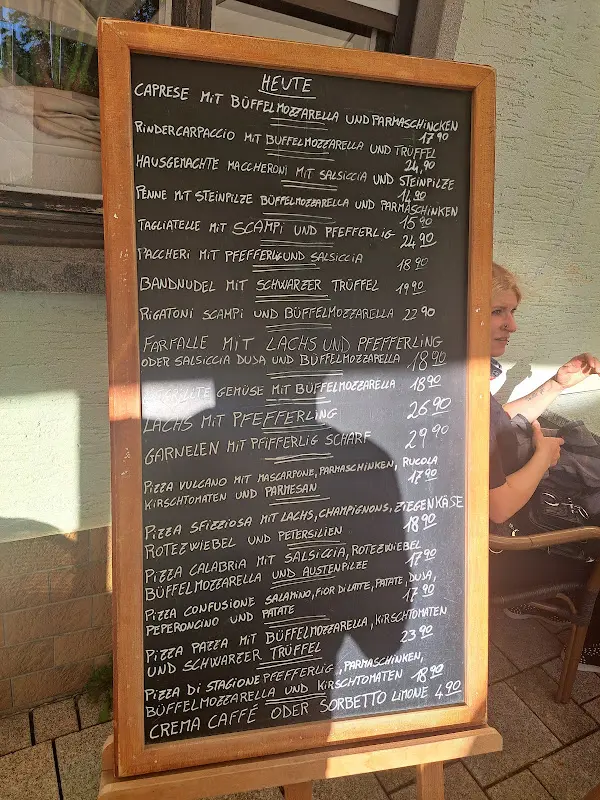 HEUTE
CAPRESE MIT BÜFFELMOZZARELLA UND PARMASCHINCKEN
17,90
RINDERCARPACCIO MIT BÜFFELMOZZARELLA UND TRÜFFEL
24,90
HAUSGEMACHTE MACCHERONI MIT SALSICCIA UND STEINPILZE
14,90
PENNE MIT STEINPILZE BÜFFELMOZZARELLA UND PARMASCHINKEN
15 90
TAGLIATELLE MIT SCAMPI UND PFEFFERLIG 24 90
PACCHERI MIT PFEFFERLIG UND SALSICCIA 18 90
BANDNUDEL MIT SCHWARZER TRÜFFEL 19 90
RIGATONI SCAMPI UND BÜFFELMOZZARELLA 22 90
FARFALLE MIT LACHS UND PFEFFERLING
ODER SALSICCIA DUJA UND BÜFFELMOZZARELLA 18 90
GEMÜSE MIT BÜFFELMOZZARELLA 18 90
LACHS MIT PFEFFERLING 26 90
GARNELEN MIT PFIFFERLIG SCHARF 29 90
PIZZA VULCANO MIT MASCARPONE, PARMASCHINKEN, RUCOLA
KIRSCHTOMATEN UND PARMESAN 17 90
PIZZA SFIZZIOSA MIT LACHS, CHAMPIGNONS, ZIEGENKÄSE
ROTEZWIEBEL UND PETERSILIEN 18 90
PIZZA CALABRIA MIT SALSICCIA, ROTEZWIEBEL
BÜFFELMOZZARELLA UND AUSTENPILZE 17 90
PIZZA CONFUSIONE SALAMINO, FIOR DI LATTE, PATATE, DUJA,
PEPERONCINO UND PATATE 17 90
PIZZA PAZZA MIT BÜFFELMOZZARELLA, KIRSCHTOMATEN
UND SCHWARZER TRÜFFEL 23 90
PIZZA DI STAGIONE PFEFFERLIG, PARMASCHINKEN,
BÜFFELMOZZARELLA UND KIRSCHTOMATEN 18 90
CREMA CAFFÉ ODER SORBETTO LIMONE 4 90